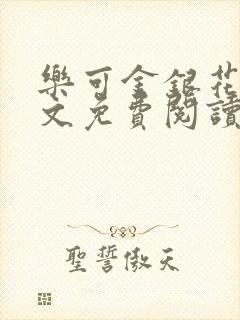 樂可金銀花
文免費閱讀
聖誓傲天